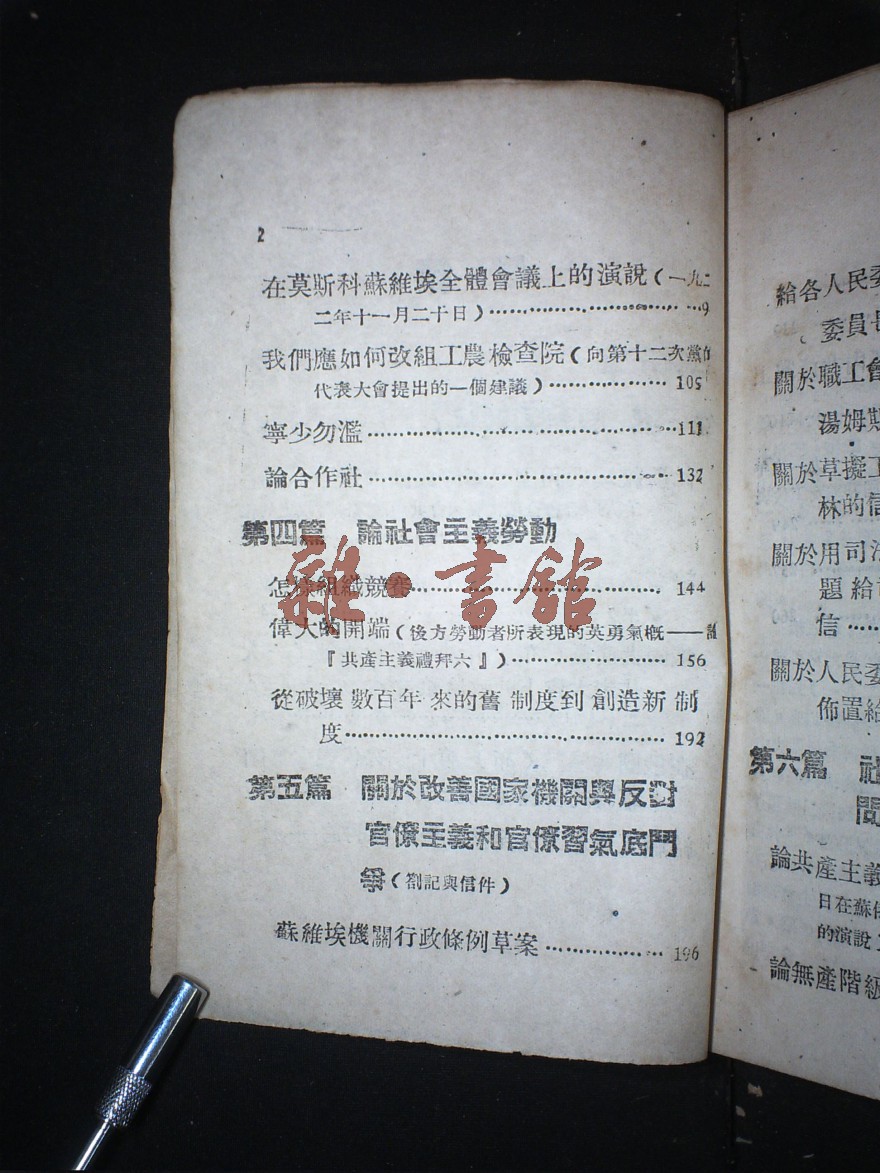 2
在莫斯科蘇維埃全體會議上的演說（一九二
二年十一月二十日）……………………9
我們應如何改組工農檢查院（向第十二次黨的
代表大會提出的一個建議）……………105
寧少勿濫……………………………………111
論合作社……………………………………132
第四篇　論社會主義勞動
怎樣組織競賽………………………………144
偉大的開端（後方勞動者所表現的英勇氣概——論
『共產主義禮拜六』）…………………156
從破壞數百年來的舊制度到創造新制
度……………………………………………192
第五篇　關於改善國家機關與反對
官僚主義和官僚習氣底鬥
爭（劄記與信件）
蘇維埃機關行政條例草案…………………196
雜·書館
給各人民委
委員長
關於職工會
湯姆斯
關於草擬工
林的信
關於用司法
題給
信……
關於人民委
佈置給
第六篇　社
問
論共產主義
日在蘇維
的演說
論無產階級